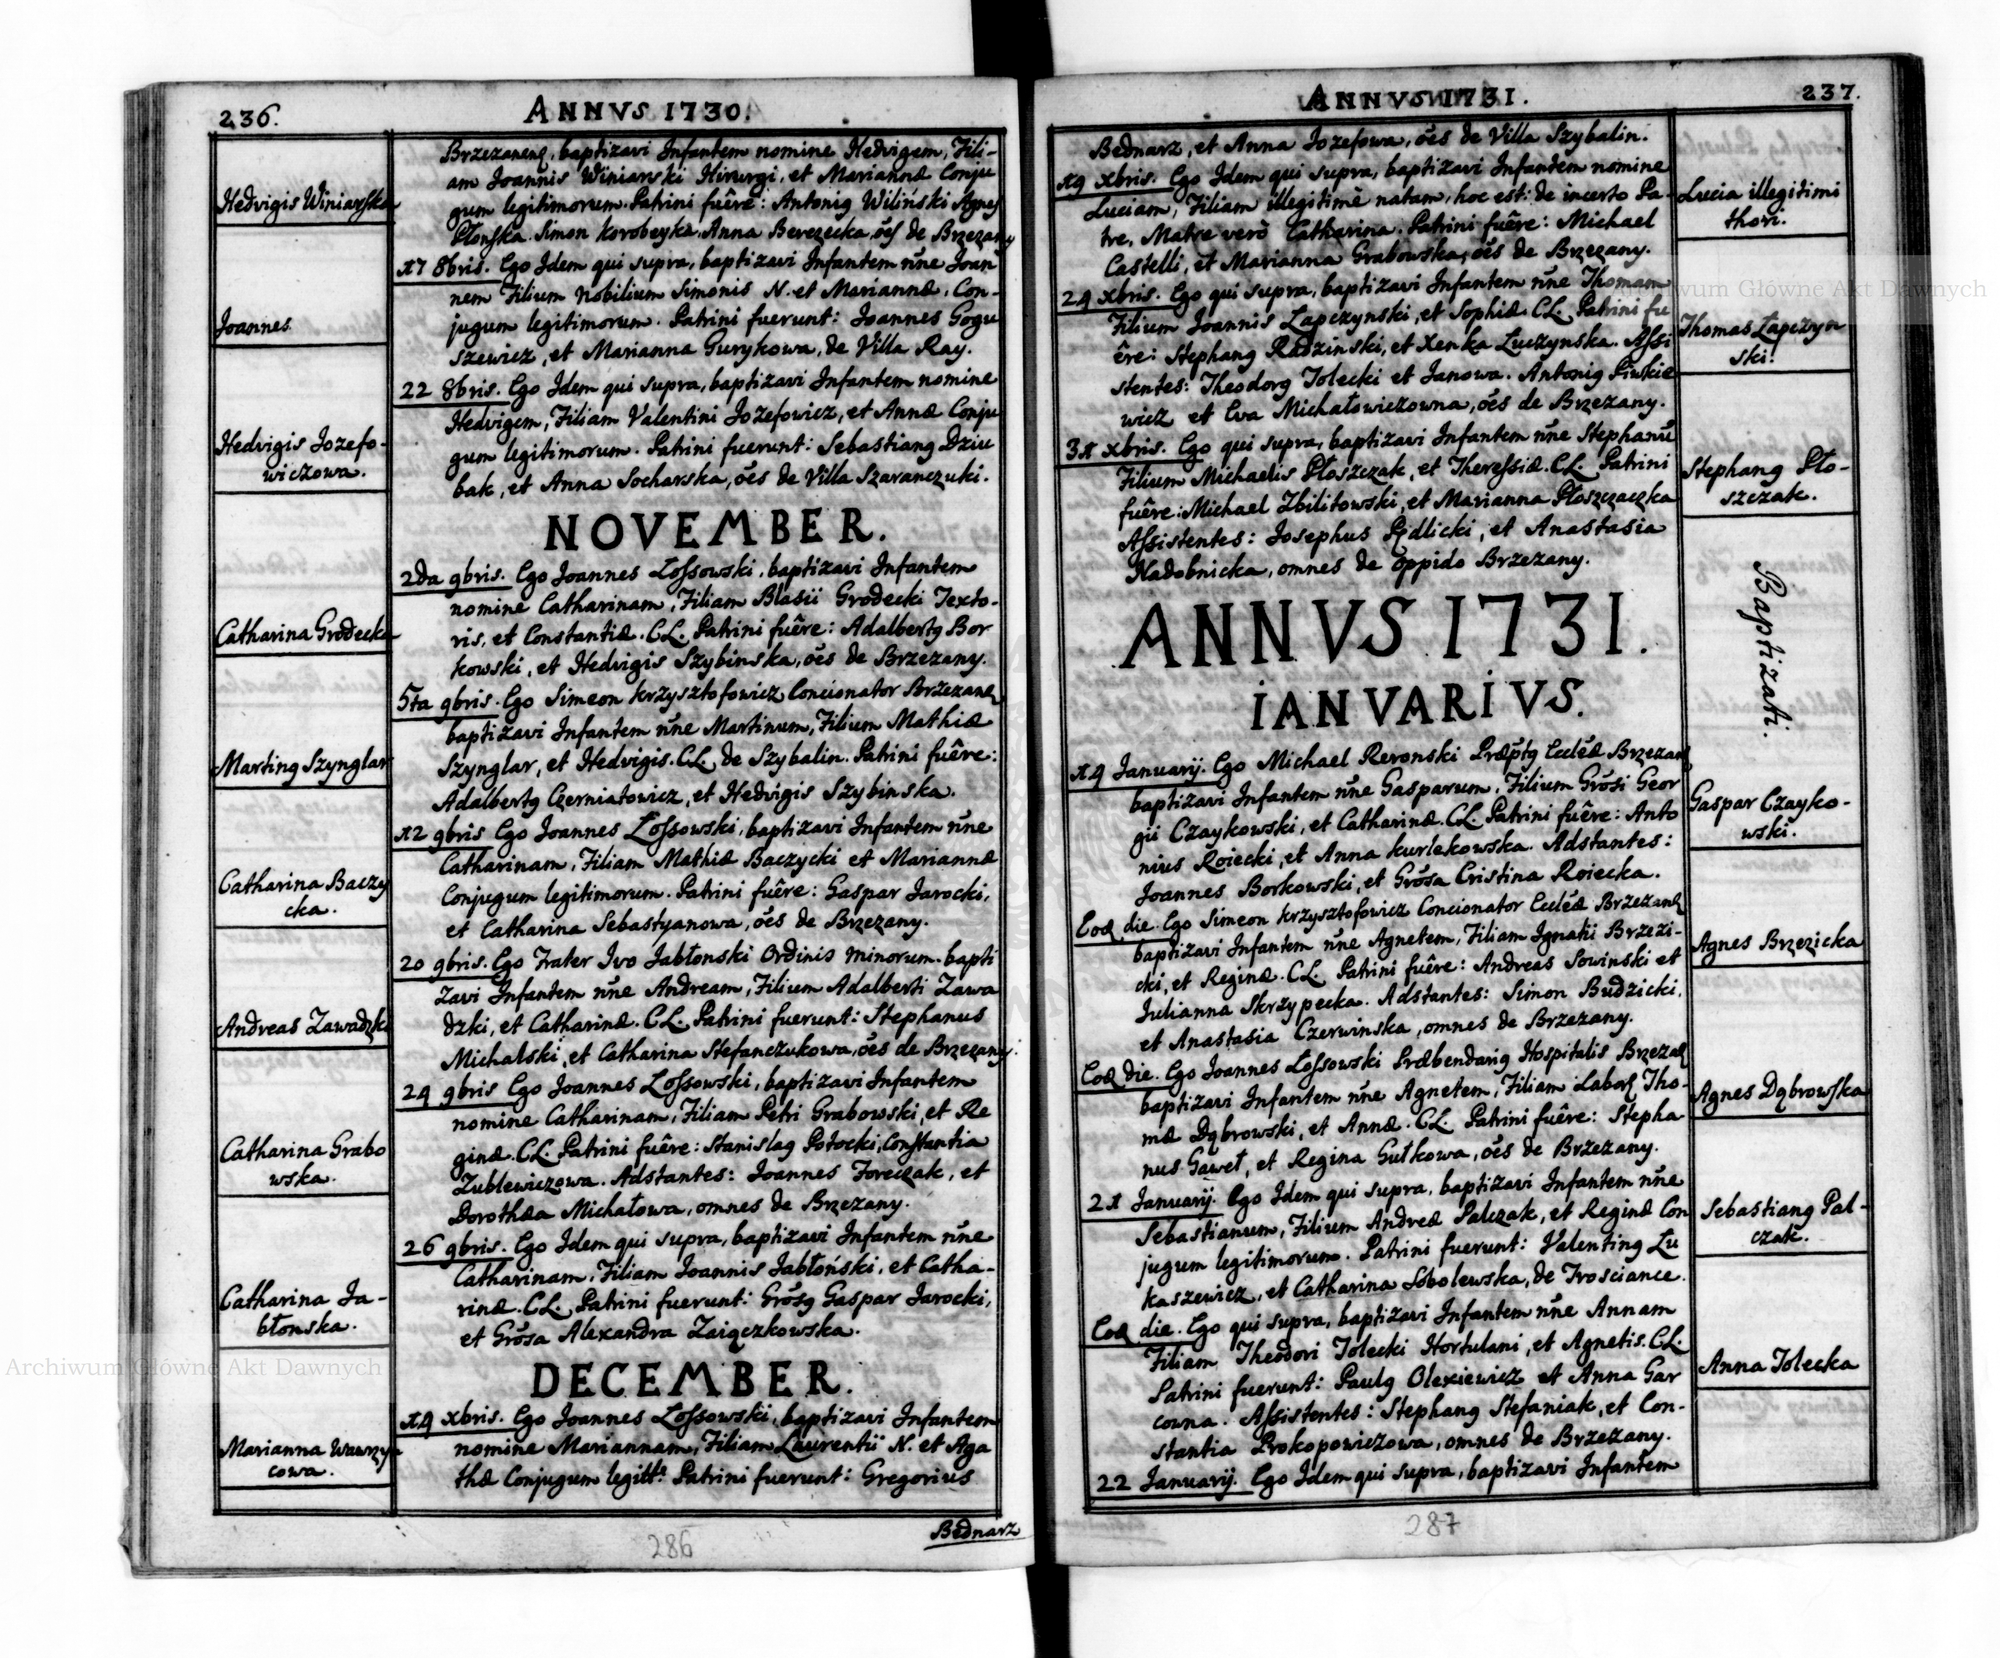 236.
ANNVS 1730.
Hedvigis Winiarska
Joannes
Hedvigis Jozefo-
wiczowa.
Catharina Grodecka
Martinꝯ Szynglar
Catharina Baczy
cka.
Andreas Zawadzki
Catharina Grabo
wska.
Catharina Ja-
błonska.
Marianna Wawrzy
cowa.
Brzezanens, baptizavi Infantem nomine Hedvigem, Fili-
am Joannis Winiarski Hirurgi, et Mariannæ Conju
gum legitimorum. Patrini fuêre: Antoniꝯ Wiliński Agnes
Płonska. Simon Korobeyka. Anna Berezecka, oẽs de Brzezany
17 8bris. Ego Idem qui supra, baptizavi Infantem nñe Joan
nem Filium Nobilium Simonis N. et Mariannæ, Con-
jugum legitimorum. Patrini fuerunt: Joannes Gogu
szewicz, et Marianna Gurykowa, de Villa Ray.
22 8bris. Ego Idem qui supra, baptizavi Infantem nomine
Hedvigem, Filiam Valentini Jozefowicz, et Annæ Conju
gum legitimorum. Patrini fuerunt: Sebastianꝯ Dziu
bak, et Anna Socharska, oẽs de Villa Szaranczuki.
NOVEMBER.
2da 9bris. Ego Joannes Lossowski, baptizavi Infantem
nomine Catharinam, Filiam Blasii Grodecki Texto-
ris, et Constantiæ. CL. Patrini fuêre: Adalbertꝯ Bor
kowski, et Hedvigis Szybinska, oẽs de Brzezany.
5ta 9bris. Ego Simeon Krzysztofowicz Concionator Brzezanen
baptizavi Infantem nñe Martinum, Filium Mathiæ
Szynglar, et Hedvigis. CL. de Szybalin. Patrini fuêre:
Adalbertꝯ Czerniatowicz, et Hedvigis Szybinska.
12 9bris Ego Joannes Lossowski, baptizavi Infantem nñe
Catharinam, Filiam Mathiæ Baczycki et Mariannæ
Conjugum legitimorum. Patrini fuêre: Gaspar Jarocki,
et Catharina Sebastyanowa, oẽs de Brzezany.
20 9bris. Ego Frater Ivo Jabłonski Ordinis minorum. bapti
zavi Infantem nñe Andream, Filium Adalberti Zawa
dzki, et Catharinæ. CL. Patrini fuerunt: Stephanus
Michalski, et Catharina Stefanczukowa, oẽs de Brzezany.
24 9bris Ego Joannes Lossowski, baptizavi Infantem
nomine Catharinam, Filiam Petri Grabowski, et Re
ginæ. CL. Patrini fuêre: Stanislaꝯ Potocki, Constantia
Zublewiczowa. Adstantes: Joannes Foreczak, et
Dorothæa Michałowa, omnes de Brzezany.
26 9bris. Ego Idem qui supra, baptizavi Infantem nñe
Catharinam, Filiam Joannis Jabłoński, et Catha-
rinæ. CL. Patrini fuerunt: Grõsꝯ Gaspar Jarocki,
et Grõsa Alexandra Zaiączkowska.
DECEMBER.
14 xbris. Ego Joannes Lossowski, baptizavi Infantem
nomine Mariannam, Filiam Laurentii N. et Aga
thæ Conjugum legitt: Patrini fuerunt: Gregorius
Bednarz
286
237.
ANNVS 1731.
Bednarz, et Anna Jozefowa, oẽs de Villa Szybalin.
19 xbris. Ego Idem qui supra, baptizavi Infantem nomine
Luciam, Filiam illegitimè natam, hoc est: de incerto Pa-
tre, Matre verò Catharina. Patrini fuêre: Michael
Castelli, et Marianna Grabowska, oẽs de Brzezany.
24 xbris. Ego qui supra, baptizavi Infantem nñe Thomam
Filium Joannis Lapczynski, et Sophiæ. CL. Patrini fu
êre: Stephanꝯ Radzinski, et Xenka Luczynska. Assi
stentes: Theodorꝯ Tolecki et Janowa. Antoniꝯ Piwkie
wicz et Eva Michałowiczowna, oẽs de Brzezany.
31 xbris. Ego qui supra, baptizavi Infantem nñe Stephanũ
Filium Michaelis Płoszczak, et Theressiæ. CL. Patrini
fuêre: Michael Zbilitowski, et Marianna Płoszczaczka
Assistentes: Josephus Pędlicki, et Anastasia
Nadobnicka, omnes de oppido Brzezany.
ANNVS 1731.
IANVARIVS.
14 Januarij. Ego Michael Reronski Præptꝯ Eccleæ Brzezan
baptizavi Infantem nñe Gasparum, Filium Grõsi Geor
gii Czaykowski, et Catharinæ. CL. Patrini fuêre: Anto
nius Roiecki, et Anna Kurlekowska. Adstantes:
Joannes Borkowski, et Grõsa Cristina Roiecka.
Eod die. Ego Simeon Krzysztofowicz Concionator Eccleæ Brzezanen
baptizavi Infantem nñe Agnetem, Filiam Ignatii Brzezi-
cki, et Reginæ. CL. Patrini fuêre: Andreas Sowinski et
Julianna Skrzypecka. Adstantes: Simon Budzicki,
et Anastasia Czerwinska, omnes de Brzezany.
Eod die. Ego Joannes Lossowski Præbendariꝯ Hospitalis Brzezan
baptizavi Infantem nñe Agnetem, Filiam Labor Tho-
mæ Dąbrowski, et Annæ. CL. Patrini fuêre: Stepha
nus Gaweł, et Regina Gutkowa, oẽs de Brzezany.
21 Januarij. Ego Idem qui supra, baptizavi Infantem nñe
Sebastianum, Filium Andreæ Palczak, et Reginæ Con
jugum legitimorum. Patrini fuerunt: Valentinꝯ Lu
kaszewicz, et Catharina Sobolewska, de Trosciance.
Eod die. Ego qui supra, baptizavi Infantem nñe Annam
Filiam Theodori Tolecki Hortulani, et Agnetis. CL.
Patrini fuerunt: Paulꝯ Olexiewicz et Anna Gar
cowna. Assistentes: Stephanꝯ Stefaniak, et Con-
stantia Prokopowiczowa, omnes de Brzezany.
22 Januarij. Ego Idem qui supra, baptizavi Infantem
Lucia illegitimi
thori.
Thomas Łapczyn
ski.
Stephanꝯ Pło-
szczak.
Baptizati.
Gaspar Czayko-
wski.
Agnes Brzezicka
Agnes Dąbrowska
Sebastianꝯ Pal-
czak.
Anna Tolecka
287
Archiwum Główne Akt Dawnych
Archiwum Główne Akt Dawnych